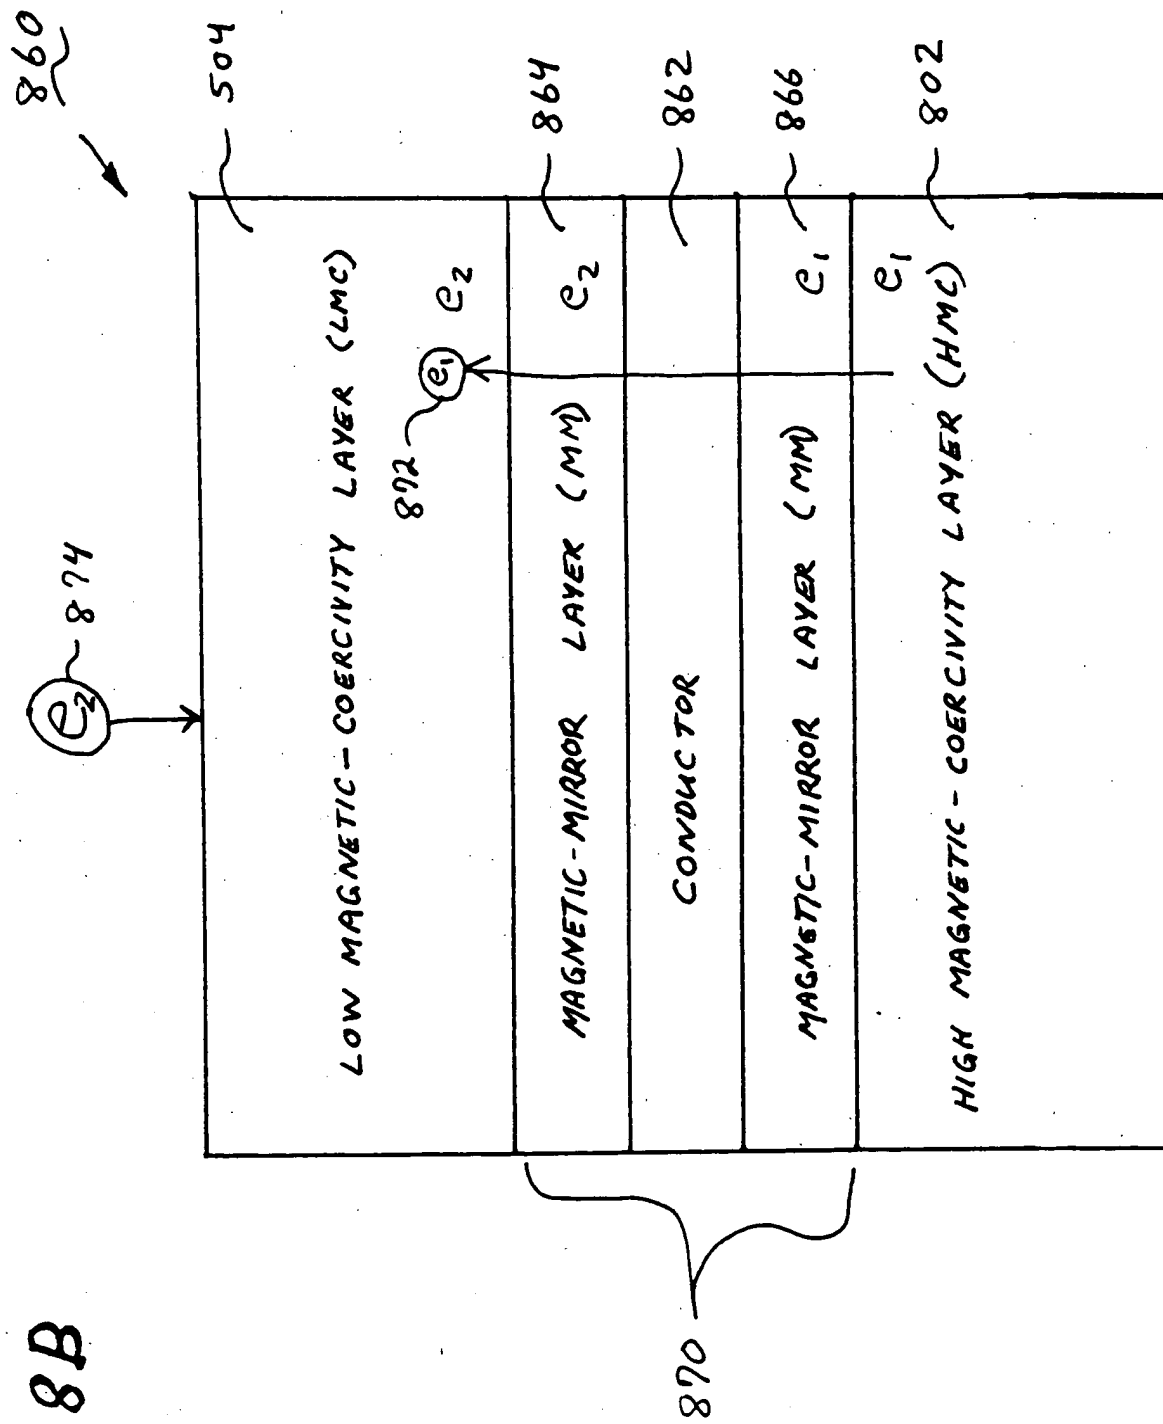 8B
860
e2
874
504
LOW MAGNETIC-COERCIVITY LAYER (LMC)
872
e1
e2
864
MAGNETIC-MIRROR LAYER (MM)
e2
862
CONDUCTOR
866
MAGNETIC-MIRROR LAYER (MM)
e1
802
e1
HIGH MAGNETIC-COERCIVITY LAYER (HMC)
870